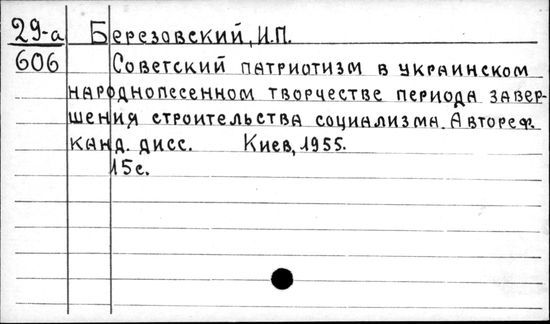 29-а Березовский, И.П.
606 Советский патриотизм в украинском
народнопесенном творчестве периода завер-
шения строительства социализма. Автореф.
канд. дисс. Киев, 1955.
15с.